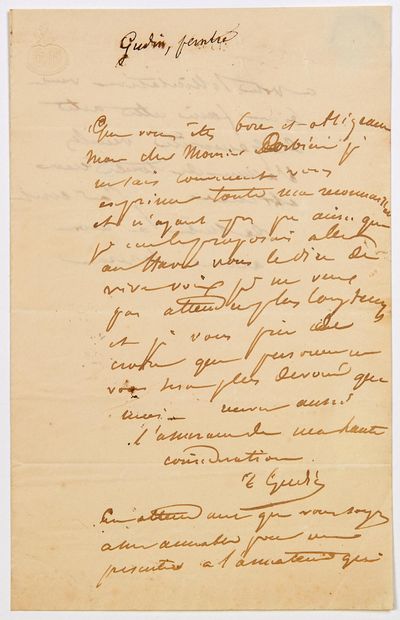 Gudin, peintre
Que vous êtes bon et obligeant
mon cher Monsieur je
ne sais comment vous
exprimer toute ma reconnaissance
et n'ayant pas pu ainsi que
je me le proposais aller
au Havre vous le dire de
vive voix je ne veux
pas attendre plus longtemps
et je vous prie de
croire que personne ne
vous sera plus dévoué que
moi aussi
l'assurance de ma haute
considération
T Gudin
En attendant que vous soyez
assez aimable pour me
présenter à l'amateur qui